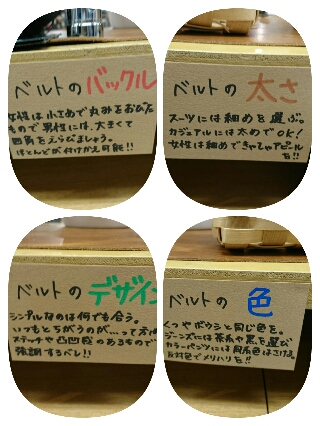 ベルトの バックル
女性は小さめで丸みをおびた
もので男性には、大きくて
四角をえらびましょう。
ほとんどが付けかえ可能!!
ベルトの 太さ
スーツには細めを選ぶ。
カジュアルには太めでOK!
女性は細めできゃしゃアピール
を!!
ベルトの デザイン
シンプルなのは何でも合う。
いつもとちがうのが...って方は
ステッチや凸凹感のあるもので
強調するべし!!
ベルトの 色
くつやボウシと同じ色を。
ジーンズには茶系や黒を選び
カラーパンツには同系色はさけ、
反対色でメリハリを!!